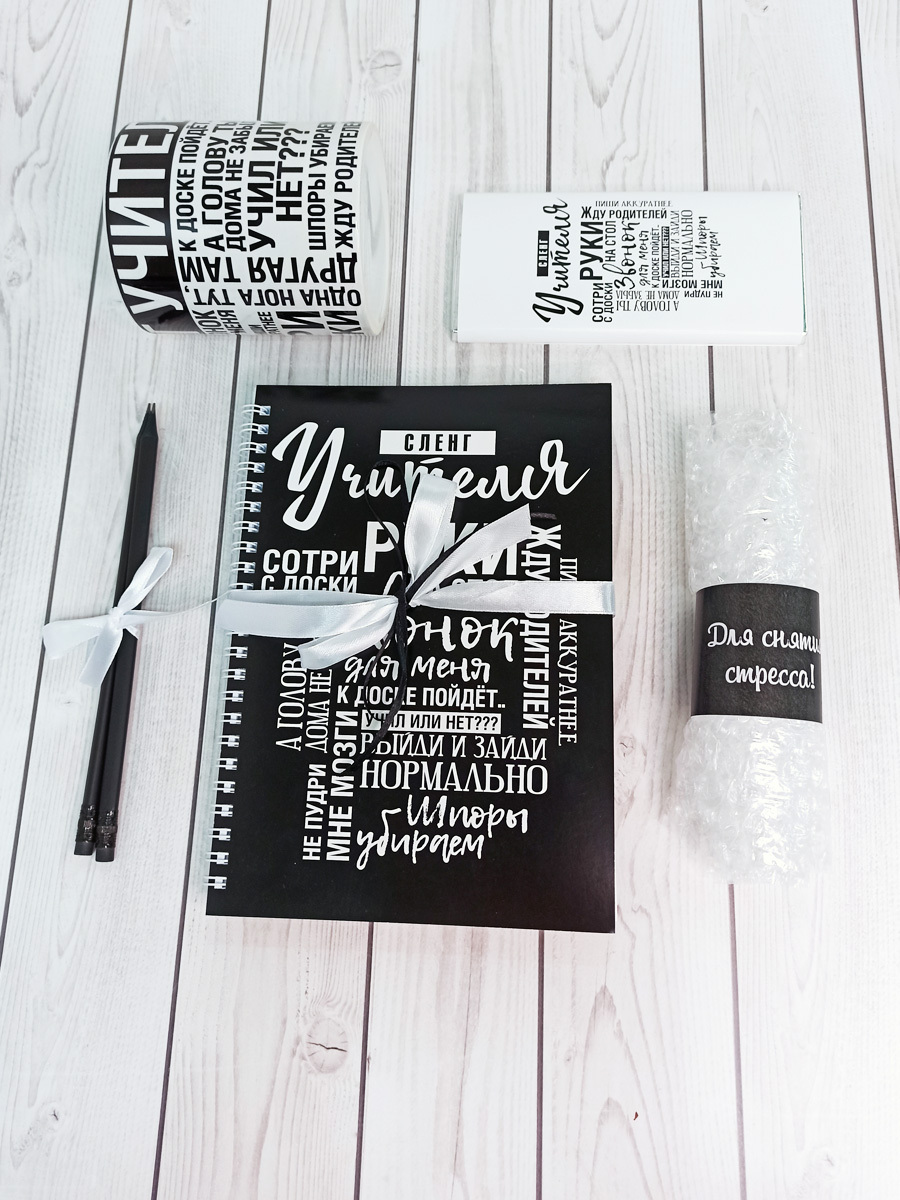 УЧИТЕЛ
К ДОСКЕ ПОЙДЁТ
А ГОЛОВУ ТЫ
ДОМА НЕ ЗАБЫЛ
УЧИЛ ИЛИ
НЕТ???
ШПОРЫ УБИРАЕМ
ЖДУ РОДИТЕЛЕ
ОДНА НОГА ТУТ,
ДРУГАЯ ТАМ
СЛЕНГ
Учителя
ПИШИ АККУРАТНЕЕ
ЖДУ РОДИТЕЛЕЙ
РУКИ
НА СТОЛ
СОТРИ
С ДОСКИ
Звонок
для меня
К ДОСКЕ ПОЙДЁТ..
УЧИЛ ИЛИ НЕТ???
ВЫЙДИ И ЗАЙДИ
НОРМАЛЬНО
Шпоры
убираем
НЕ ПУДРИ
МНЕ МОЗГИ
А ГОЛОВУ ТЫ
ДОМА НЕ ЗАБЫЛ
СЛЕНГ
Учителя
РУКИ
СОТРИ
С ДОСКИ
для меня
К ДОСКЕ ПОЙДЁТ..
УЧИЛ ИЛИ НЕТ???
ВЫЙДИ И ЗАЙДИ
НОРМАЛЬНО
Шпоры
убираем
НЕ ПУДРИ
МНЕ МОЗГИ
А ГОЛОВУ
ДОМА НЕ
АККУРАТНЕЕ
Для сняти
стресса!